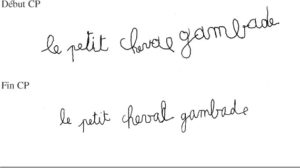 Début CP
le petit cheval gambade
Fin CP
le petit cheval gambade